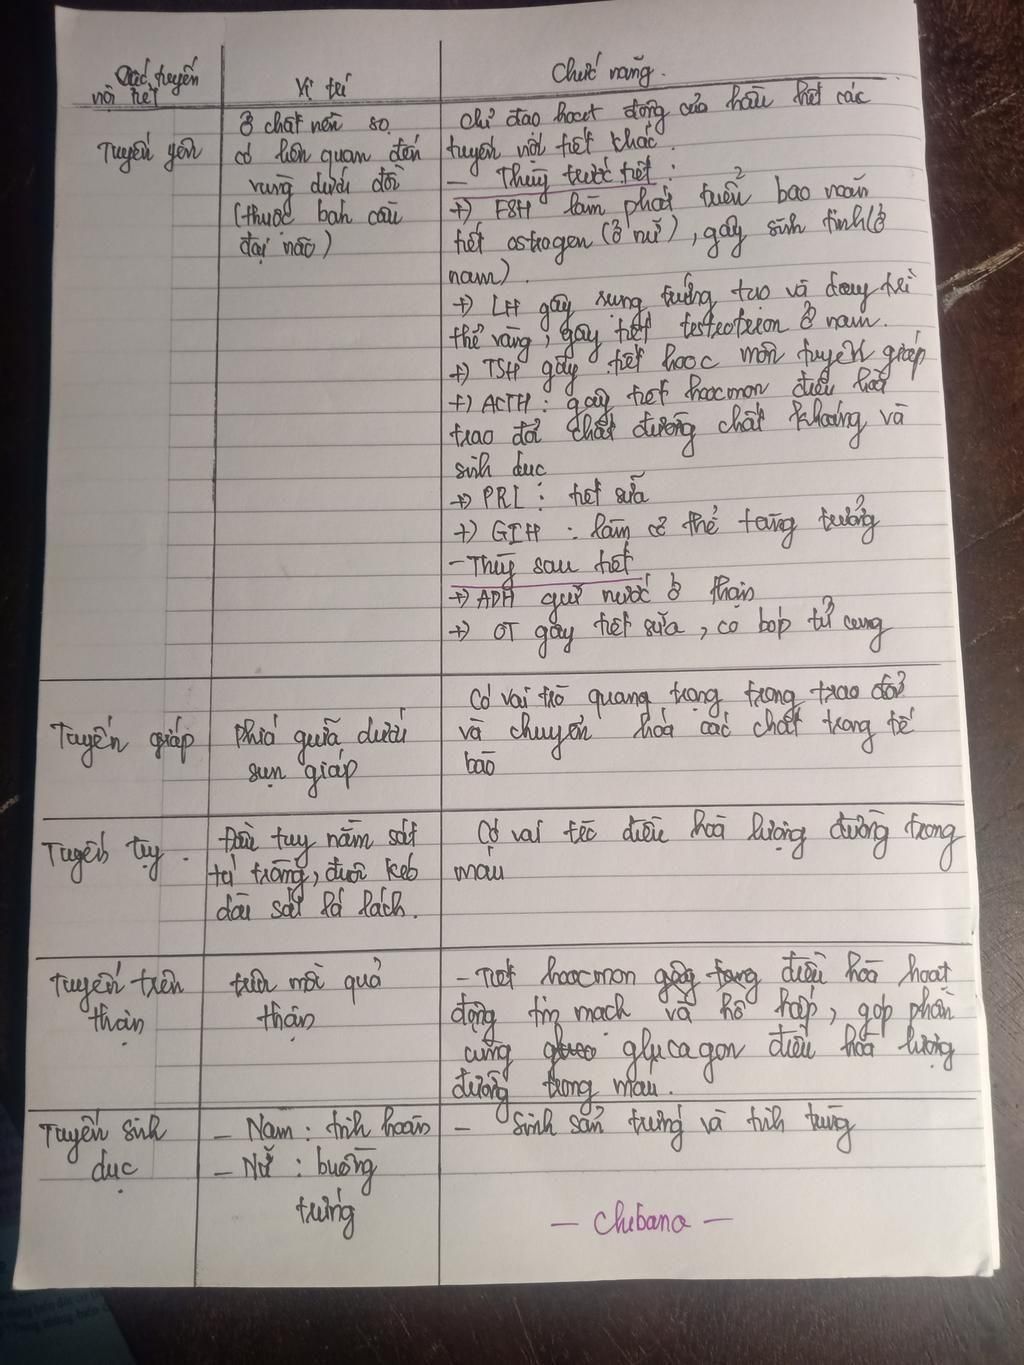 Các tuyến nội tiết
Vị trí
Chức năng.
Tuyến yên
Ở chất nền sọ,
có liên quan đến
vùng dưới đồi
(thuộc bán cầu
đại não)
chỉ đạo hoạt động của hầu hết các
tuyến nội tiết khác.
- Thùy trước tiết:
+) FSH làm phát triển bao noãn
tiết ostrogen (ở nữ), gây sinh tinh (ở
nam).
+) LH gây rụng trứng tạo và duy trì
thể vàng, gây tiết testrotsion ở nam.
+) TSH gây tiết hooc môn tuyến giáp
+) ACTH: gây tiết hoocmon điều hoà
trao đổi chất đường chất khoáng và
sinh dục
+) PRL: tiết sữa
+) GIH: làm cơ thể tăng trưởng
- Thùy sau tiết
+) ADH giữ nước ở thận
+) OT gây tiết sữa, co bóp tử cung
Tuyến giáp
phía giữa dưới
sụn giáp
Có vai trò quang trọng trong trao đổi
và chuyển hóa các chất trong tế
bào
Tuyến tụy.
Đầu tuy nằm sát
tá tràng, đuôi kéo
dài sát lá lách.
Có vai trò điều hoà lượng đường trong
máu
Tuyến trên
thận
trên mỗi quả
thận
- Tiết hoocmon gây tang điều hoà hoạt
động tim mạch và hô hấp, góp phần
cùng glucagon điều hoà lượng
đường trong mau.
Tuyến sinh
dục
- Nam: tinh hoàn
- Nữ: buồng
trứng
- Sinh sản trứng và tinh trùng
- Chibana -